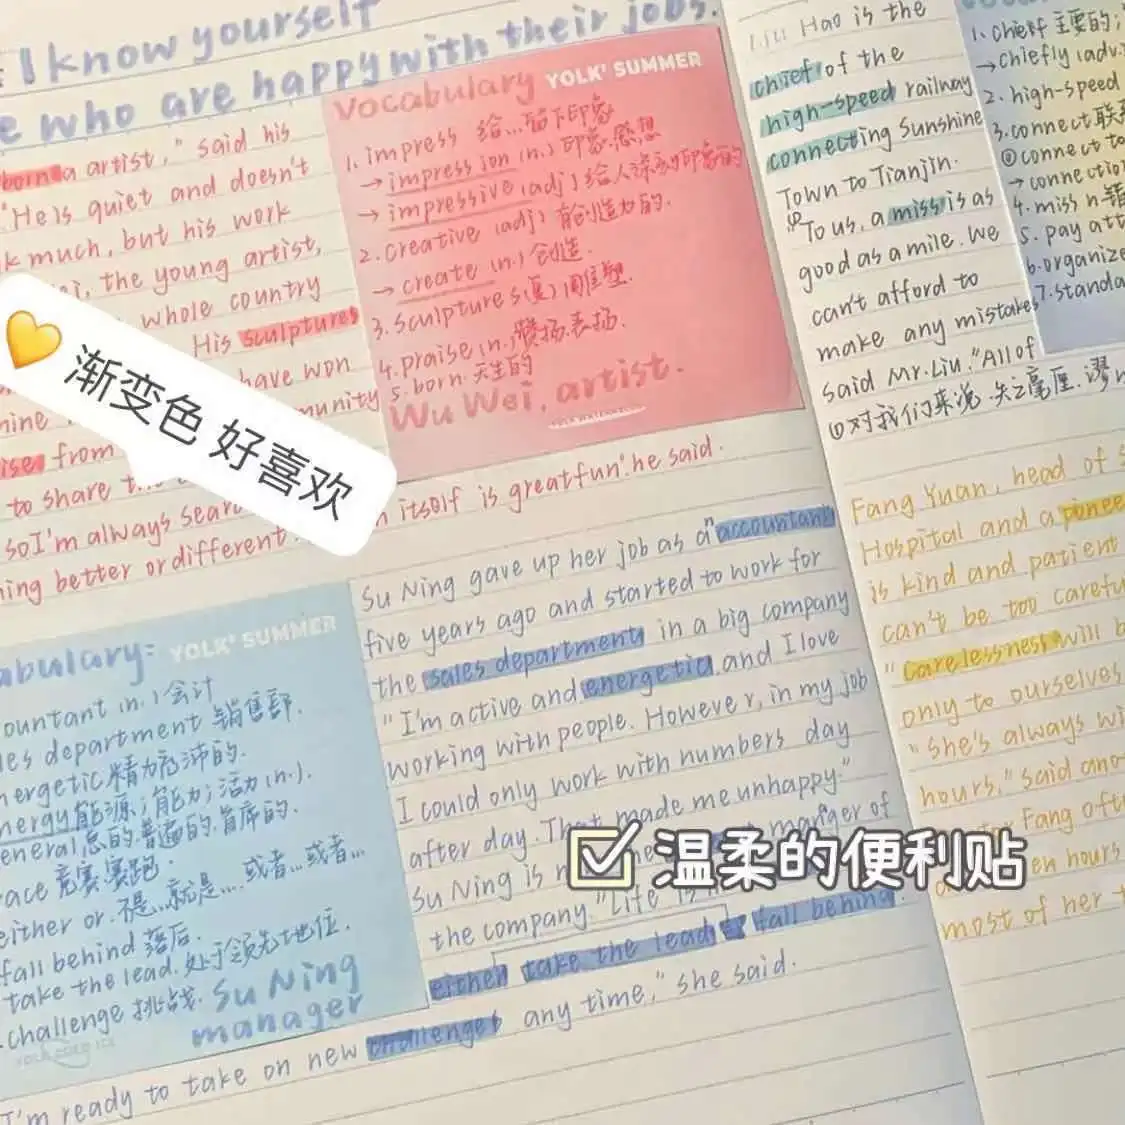 I know yourself
who are happy with their jobs.
born a artist," said his
"He is quiet and doesn't
much, but his work
, the young artist,
whole country
His sculptures
have won
munity
from
to share the
so I'm always sear
ing better or different
itself is great fun".he said.
Vocabulary YOLK' SUMMER
1. impress 给...留下印象
→ impression (n.) 印象.感想
→ impressive (adj) 给人深刻印象的
2. creative (adj) 有创造力的.
→ create (n.) 创造.
3. sculptures(复) 雕塑.
4. praise (n.) 赞扬.表扬.
5. born. 天生的
Wu Wei, artist.
渐变色 好喜欢
abulary: YOLK' SUMMER
ountant (n.) 会计
les department 销售部.
nergetic 精力充沛的.
nergy 能源;能力;活力(n.).
eneral 总的.普遍的.首席的.
race 竞赛.赛跑.
either or. 不是...就是.... 或者...或者...
fall behind 落后.
take the lead. 处于领先地位.
challenge 挑战.
Su Ning
manager
Su Ning gave up her job as a "accountant
five years ago and started to work for
the sales department in a big company
"I'm active and energetic, and I love
working with people. However, in my job
I could only work with numbers day
after day. That made me unhappy."
Su Ning is manger of
the company. "Life is
either take the lead fall behind.
any time," she said.
I'm ready to take on new challenges
温柔的便利贴
Liu Hao is the
chief of the
high-speed railway
connecting Sunshine
Town to Tianjin.
"To us, a miss is as
good as a mile. We
can't afford to
make any mistakes
said Mr. Liu. "All of
①对我们来说.失之毫厘.谬
1. chief 主要的;
→ chiefly (adv.
2. high-speed
3. connect 联
②connect to
→ connection
4. miss n 错
5. pay att
6. organize
7. standa
Fang Yuan, head of
Hospital and a pionee
is kind and patient
can't be too careful
"Carelessness will b
only to ourselves
"She's always wi
hours," said ano
Fang ofte
en hours
most of her t